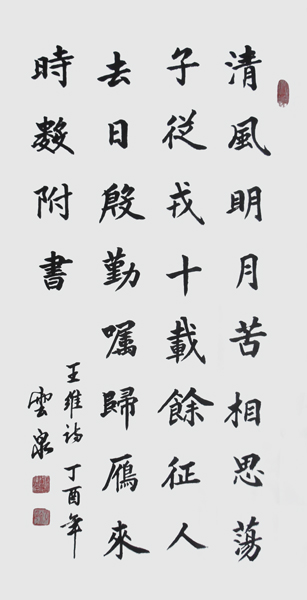 清風明月苦相思蕩
子從戎十載餘征人
去日殷勤囑歸雁來
時數附書
王維詩丁酉年
雲泉